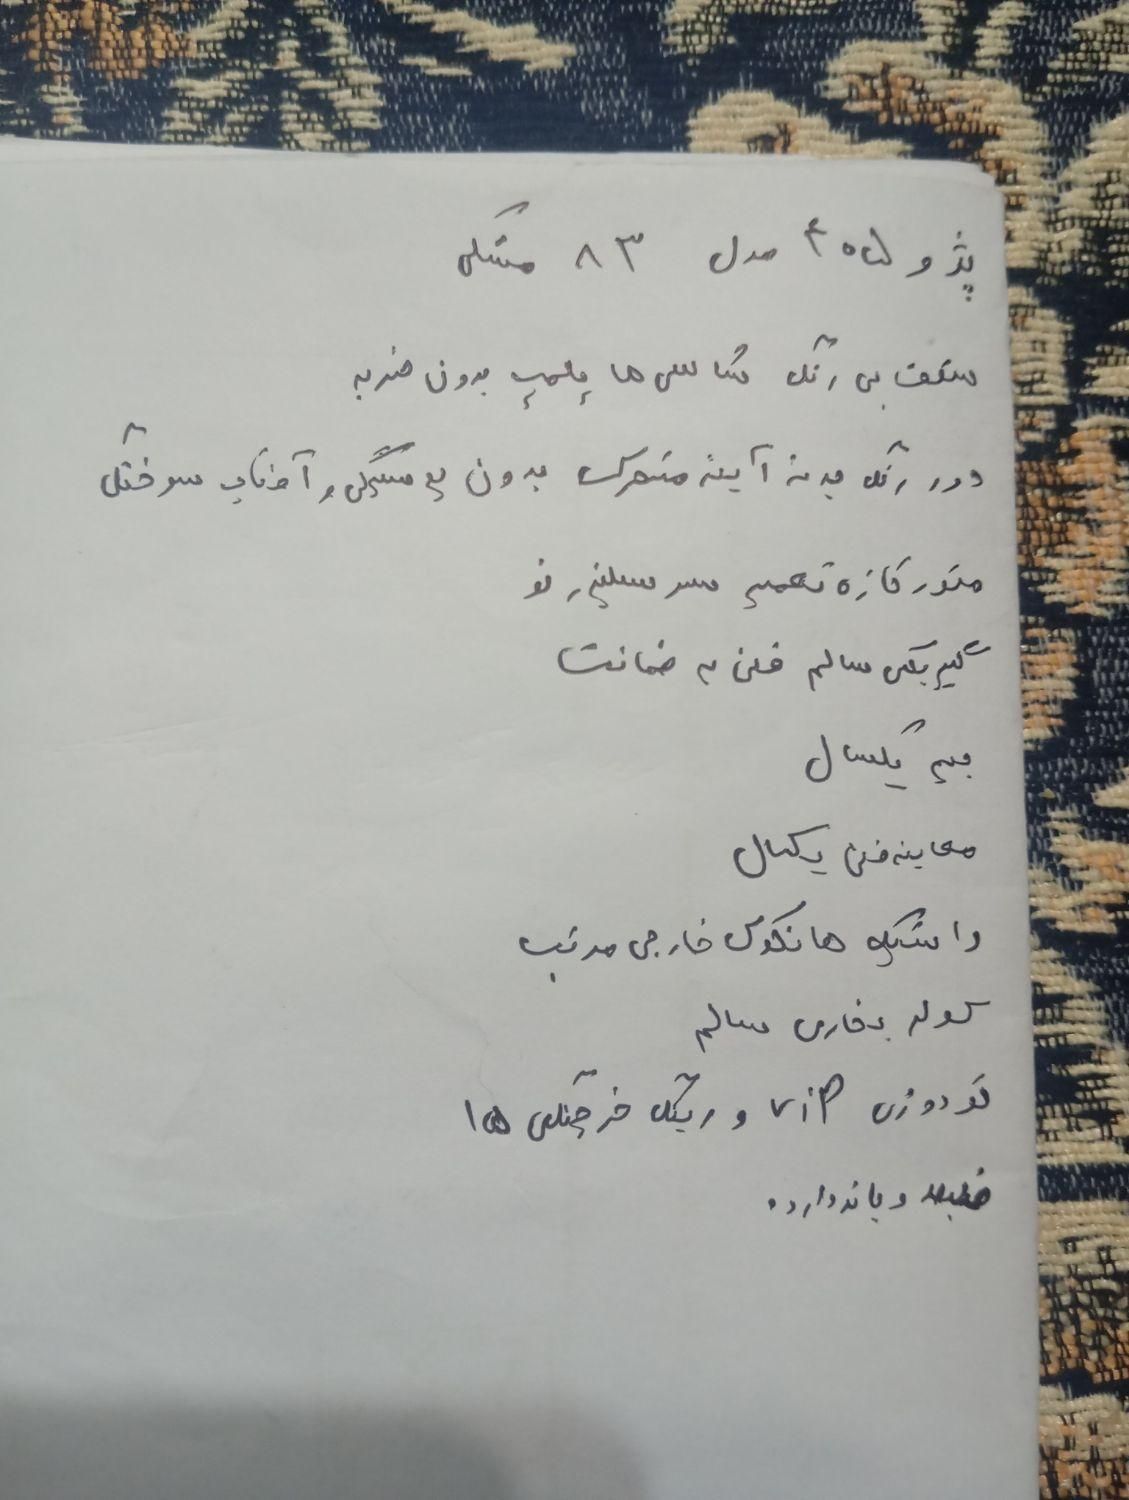 پژو ۴۰۵ مدل ۸۳ مشکی
سقف بی رنگ شاسی ها پلمپ بدون ضربه
دور رنگ بدنه آینه متحرک بدون پوسیدگی و آفتاب سوختگی
متور تازه تعمیر سرسیلندر نو
گیربکس سالم فنی به ضمانت
بیمه یکسال
معاینه فنی یکسال
واشکو هانکوک خارجی مرتب
کولر بخاری سالم
تودوزی vip و رینگ خرچنگی ۱۵
ضبط و باند دارد.